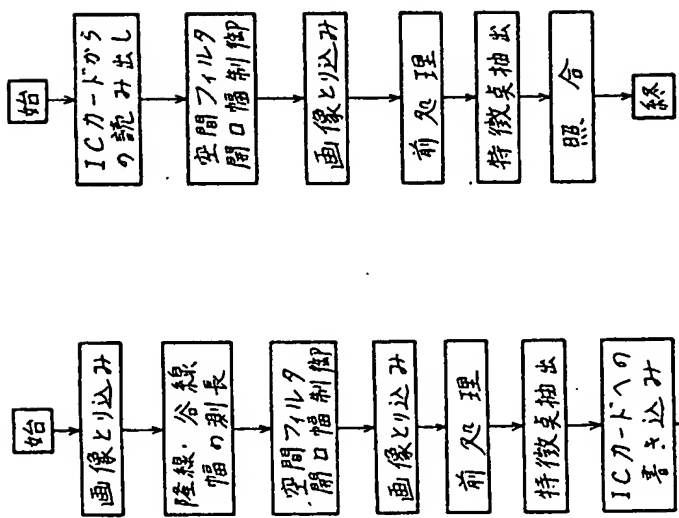 始
ICカードから
の読み出し
空間フィルタ
開口幅制御
画像とり込み
前処理
特徴点抽出
照合
終
始
画像とり込み
隆線・谷線
幅の測長
空間フィルタ
開口幅制御
画像とり込み
前処理
特徴点抽出
ICカードへの
書き込み